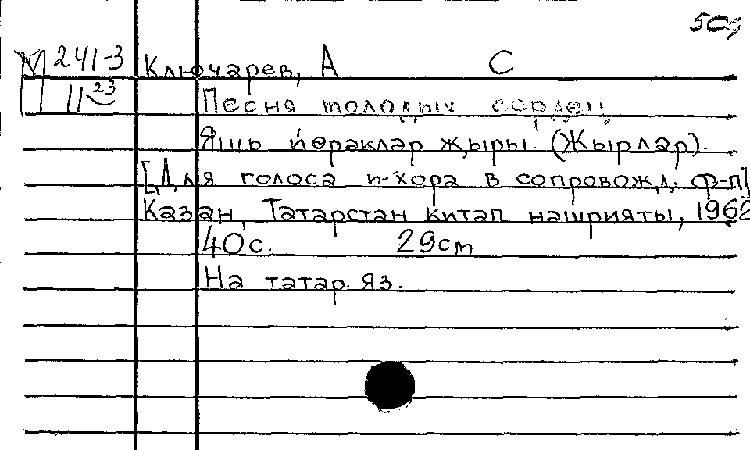 М 241-3 Ключарев, А С
11 23
Песня молодых сердец
Яшь йөрәкләр җыры. (Җырлар).
[Для голоса и хора в сопровожд. ф-п]
Казан, Татарстан китап нашрияты, 1962
40с. 29см
На татар. яз.